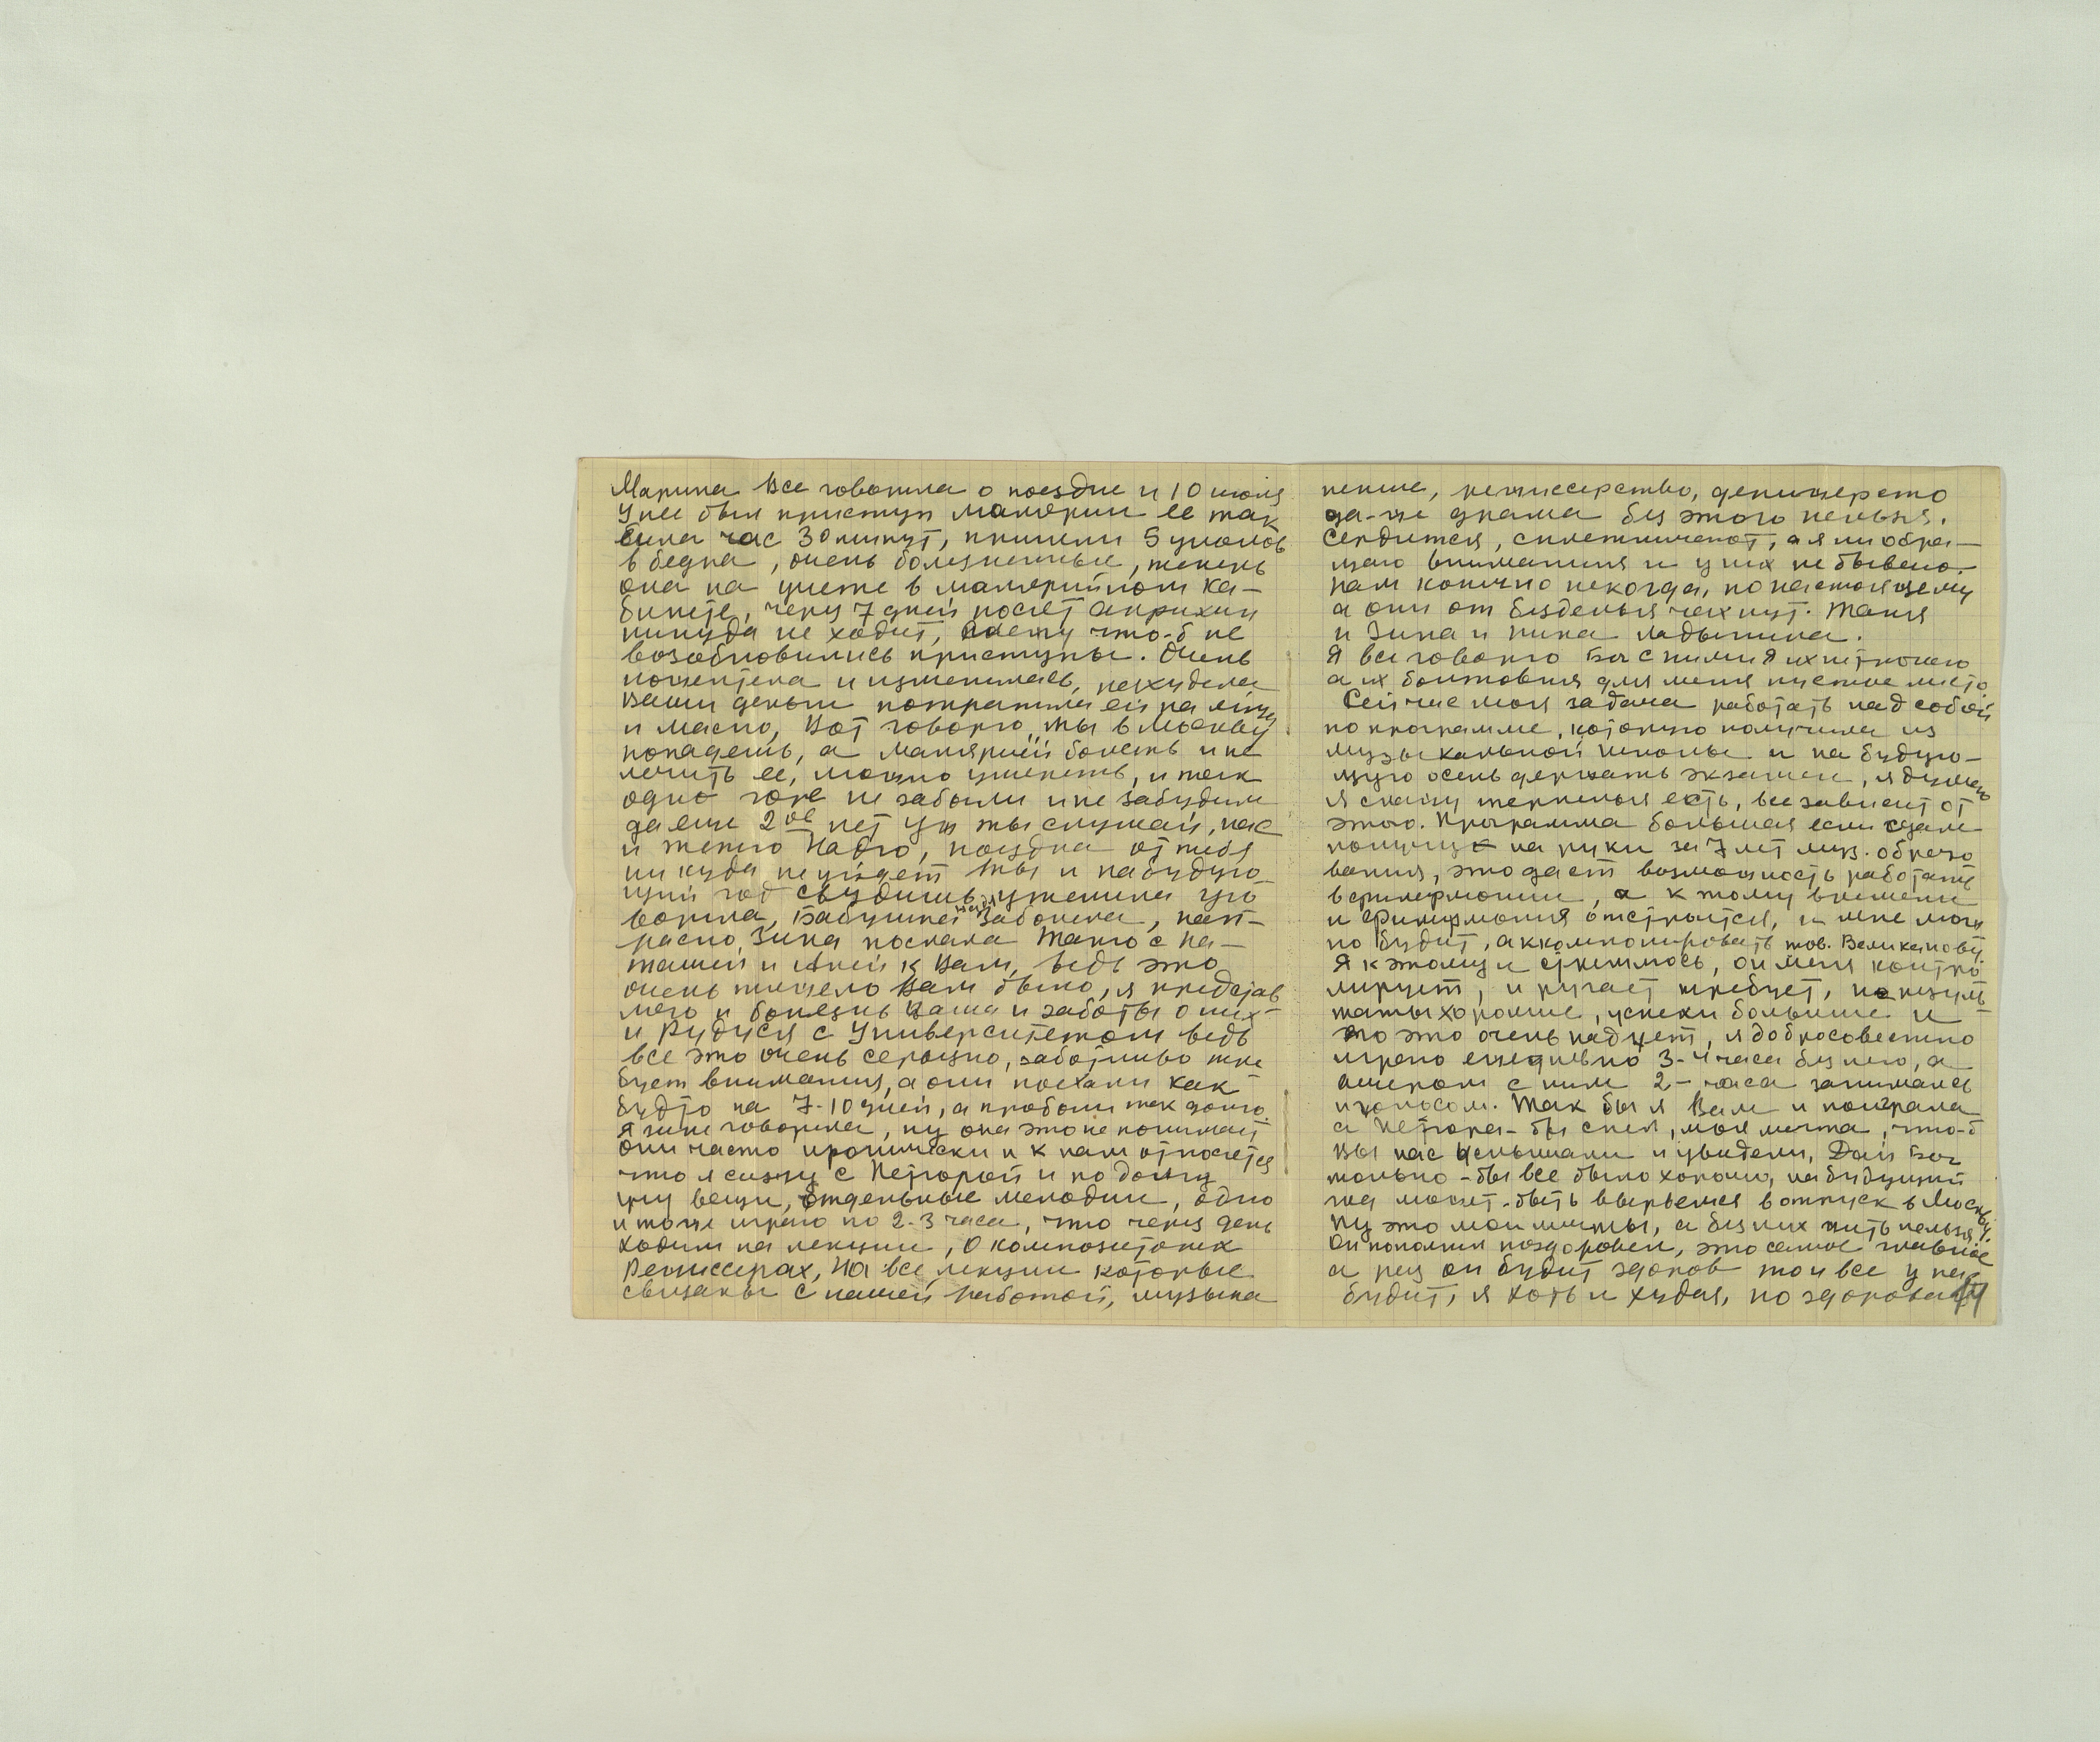 Марина все говорила о поездке и 10 июля
у нее был приступ малярии ее так
била час 30 минут, приняли 5 уколов
в бедра, очень болезненные, теперь
она на учете в малярийном ка-
бинете, через 7 дней после акрихин
никуда не ходит, что-б не
возобновились приступы. Очень
пожелтела и изменилась, похудела
Ваши деньги потратила ей на яйца
и масло, Вот говорю, ты в Москву
попадешь, а малярией болеть и не
лечить ее, можно умереть, и так
одно горе не забыли и не забудем
да еще 2ое нет уж ты слушай, нас
и тетю Надю, поездка от тебя
ни куда не уйдет ты и на будую
щий год съездишь, уж еле уго
ворила, Бабушка заболела, нап-
расно Зина послала Таню с На-
ташей и Аней к Вам, ведь это
очень тяжело Вам было, я представ
ляю и болезнь Ваша и заботы о них
и Рудуся с Университетом ведь
все это очень серьезно, заботливо тре
бует внимания, а они поехали как
будто на 7-10 дней, а пробыли так долго.
Я Зине говорила, ну она это не понимает
Они часто иронически и к нам относятся
что я сижу с Петторой и по долгу
учу вещи, отдельные мелодии, одно
и тоже играю по 2-3 часа, что через день
ходим на лекции, о композиторах
Режиссерах, На все лекции которые
связаны с нашей работой, музыка
пение, режиссерство, дирижерство
да-же драма без этого нельзя.
Сердится, сплетничают, а я ни обра-
щаю внимания и у них не бываю.
нам конечно некогда, по настоящему
а они от безделья чахнут. Таня
и Зина и Нина Ладыгина.
Я все говорю Бог с ними Я их не трогаю
а их болтовня для меня пустое место
Сейчас моя задача работать над собой
по программе, которую получила из
музыкальной школы и на будую-
щую осень держать экзамен, я думаю
я сдам терпенья есть, все зависит от
этого. Программа большая если сдам
получу на руки за 7 лет муз. образо
вания, это дает возможность работать
в филармонии, а к тому времени
и филармония отстроится, и мне мож
но будет, аккомпонировать тов. Великанову.
Я к этому и стремлюсь, он меня контро
лирует, и ругает требует, но резуль
таты хорошие, успехи большие и
это очень радует, я добросовестно
играю ежедневно 3-4 часа без него, а
вечером с ним 2- часа занимаясь
и голосом. Так бы я Вам и поиграла
а Петтора-бы спел, моя мечта, что-б
Вы нас услышали и увидели, Дай Бог
только-бы все было хорошо, на будущий
год может-быть вырвемся в отпуск в Москву.
Ну это мои мечты, а без них жить нельзя.
поздоровел, это самое главное
а раз он будет здоров то и все у нас
будет, я хоть и худая, но здоровая